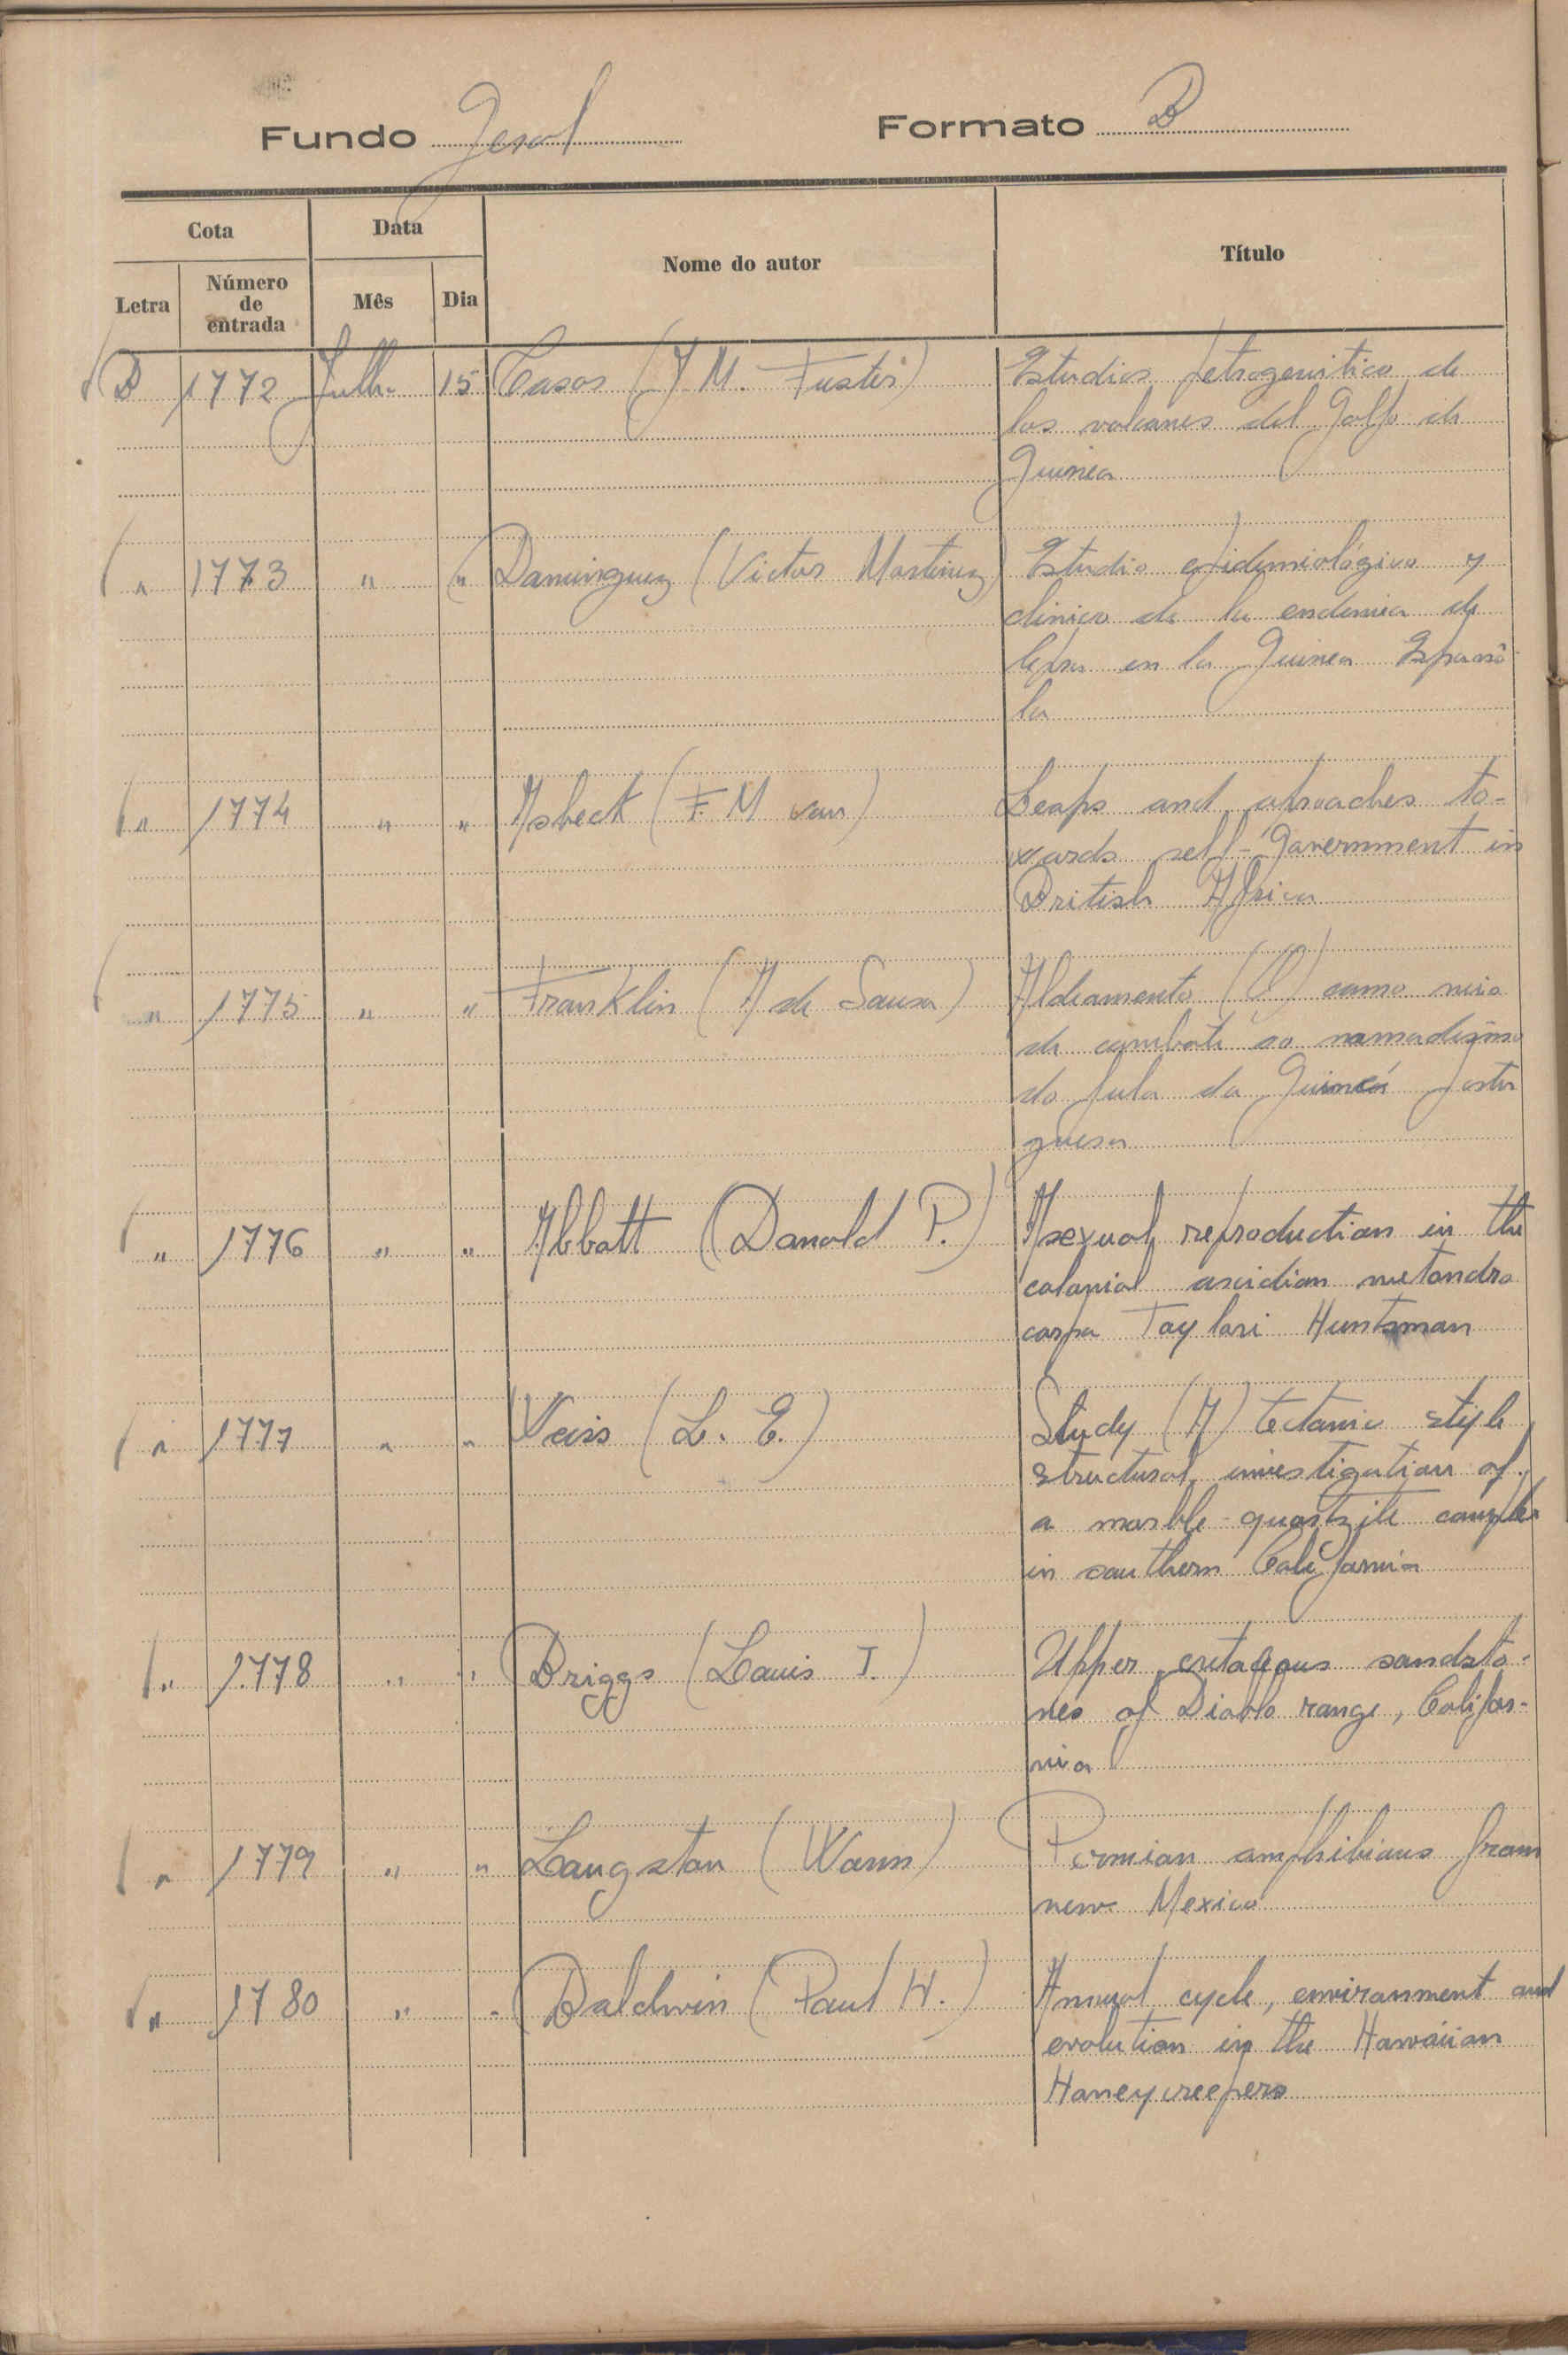 Fundo Geral Formato B
Cota Data Nome do autor Título
Letra Número de entrada Mês Dia
B 1772 Julho 15 Casas (J M. Fustér) Estudios petrogenitico de
los volcanes del Golfo de
Guinea
" 1773 " " Dominguez (Victor Martinez) Estudio epidemiológico y
clinico de la endemia de
lepra en la Guinea Españo
la
" 1774 " " Asbeck (F. M van) Leaps and aproaches to-
wards self-Government in
British Africa
" 1775 " " Franklin (A de Sousa) Aldeamento (O) como meio
de combate ao nomadismo
do fula da Guiné Portu
guesa
" 1776 " " Abbott (Donald P.) Asexual reproduction in the
colonial ascidian metandro
carpa Taylori Huntsman
" 1777 " " Weiss (L. E.) Study (A) tectonic style
structural investigation of
a marble-quartzite complex
in southern California
" 1778 " " Briggs (Louis I.) Upper cretaceous sandsto-
nes of Diablo range, Califor-
nia
" 1779 " " Langston (Wann) Permian amphibians from
new Mexico
" 1780 " " Baldwin (Paul H.) Annual cycle, environment and
evolution in the Hawaiian
Honeycreepers